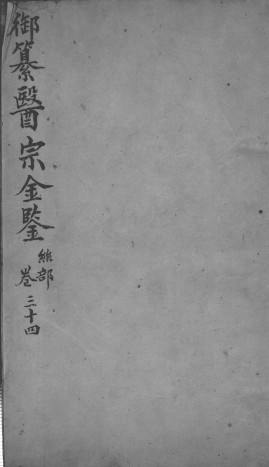 御纂醫宗金鍳
絲部
卷三十四